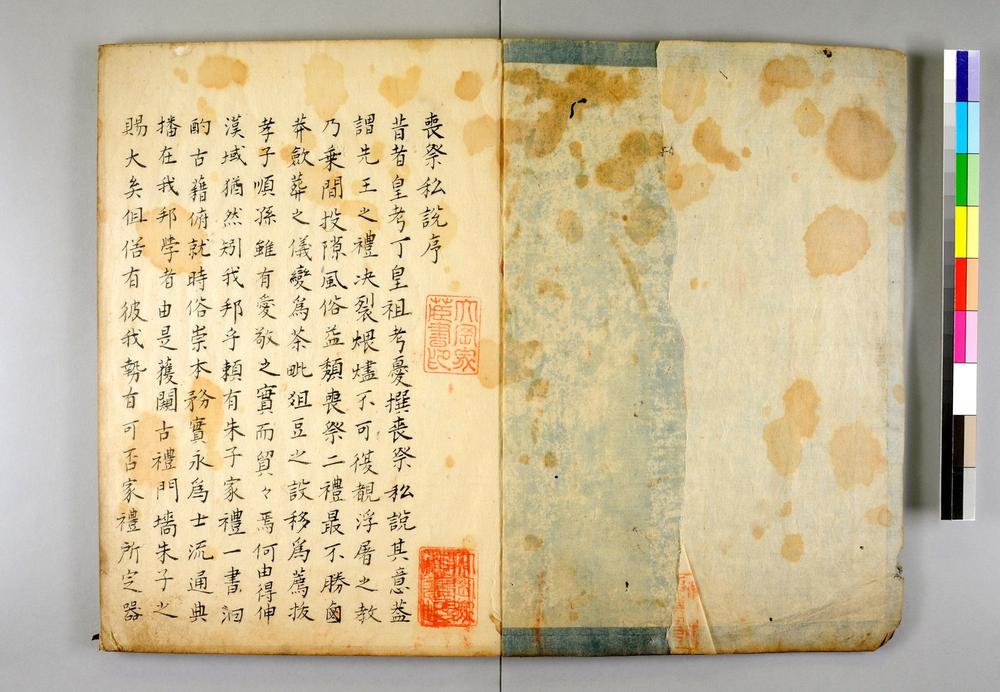 喪祭私說序
昔者皇考丁皇祖考憂撰喪祭私說其意蓋
謂先王之禮決裂煨燼不可復覩浮屠之教
乃乗間投隙風俗益頽喪祭二禮最不勝鹵
莽歛葬之儀變爲茶毗俎豆之設移爲薦抜
孝子順孫雖有愛敬之實而貿々焉何由得伸
漢域猶然矧我邦乎頼有朱子家禮一書洄
酌古藉俯就時俗崇本務實永爲士流通典
播在我邦學者由是獲闖古禮門墻朱子之
賜大矣但俗有彼我勢有可否家禮所定器
大岡家
蔵書印